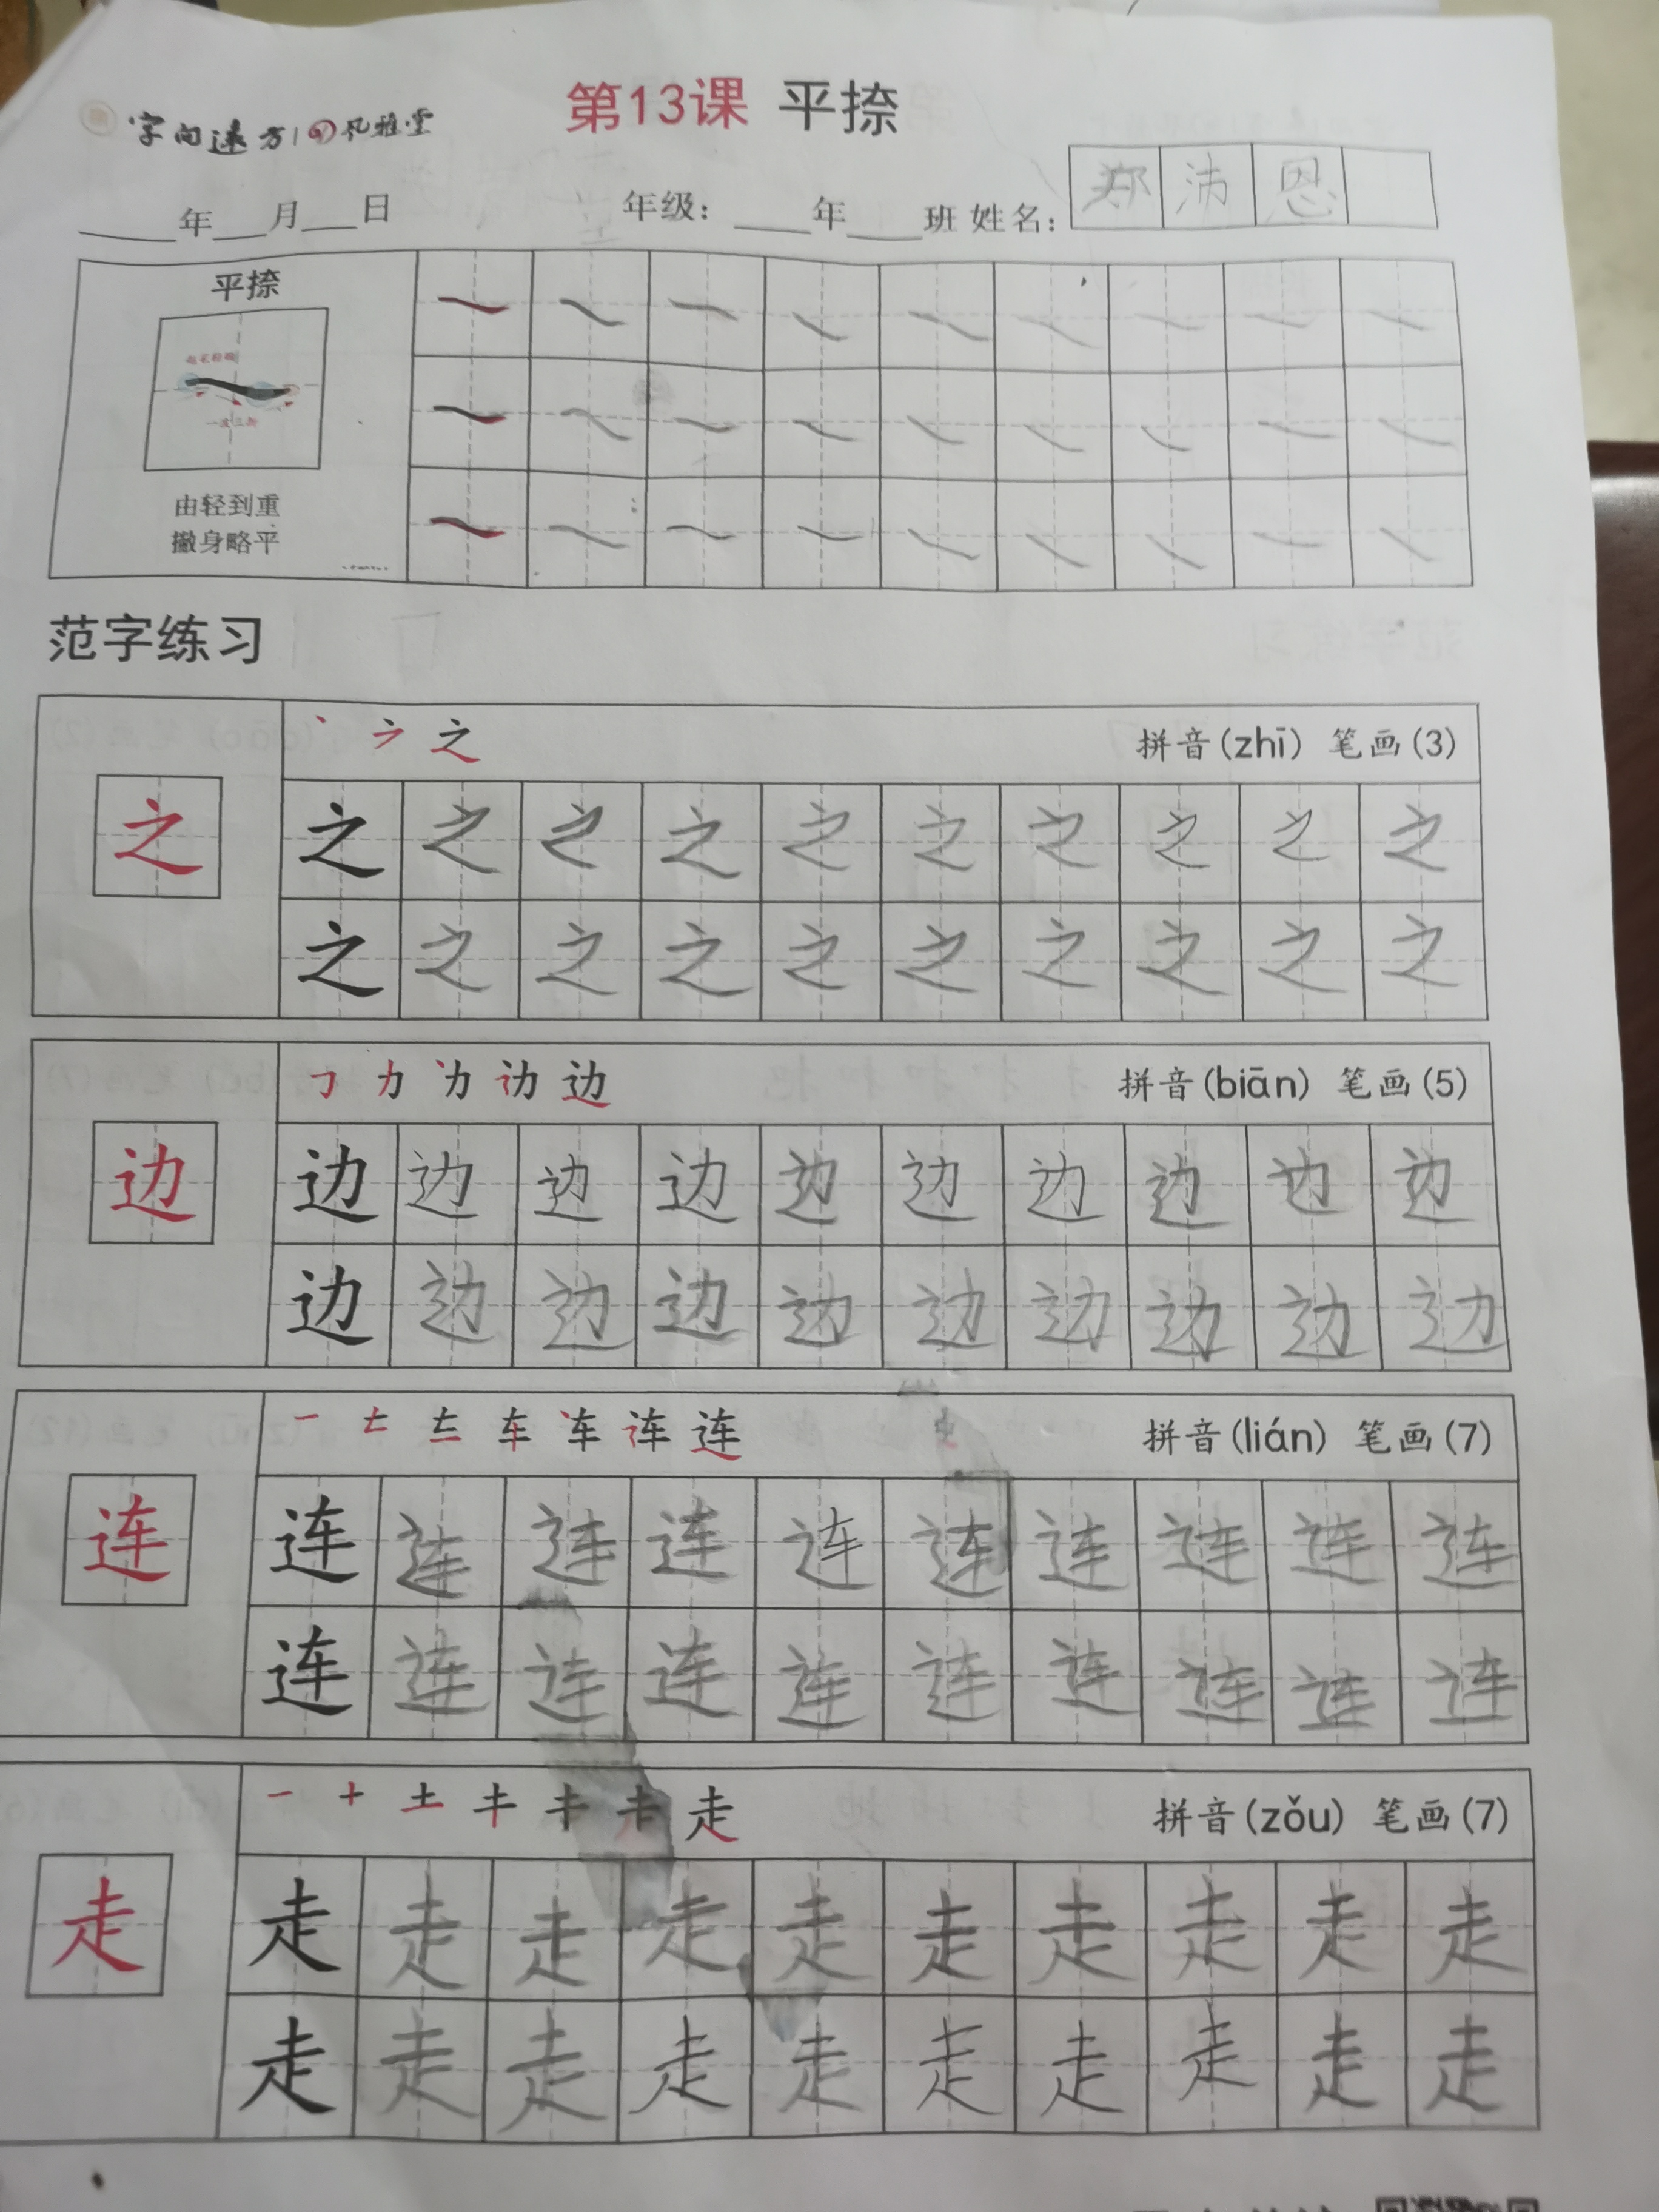 字向远方 风雅堂
第13课 平捺
年 月 日 年级: 年 班 姓名: 郑沛恩
平捺
一波三折
由轻到重
撇身略平
范字练习
之 拼音(zhī) 笔画(3)
之 之 之 之 之 之 之 之 之 之 之
之 之 之 之 之 之 之 之 之 之
边 拼音(biān) 笔画(5)
边 边 边 边 边 边 边 边 边 边 边
边 边 边 边 边 边 边 边 边 边
连 拼音(lián) 笔画(7)
连 连 连 连 连 连 连 连 连 连 连
连 连 连 连 连 连 连 连 连 连
走 拼音(zǒu) 笔画(7)
走 走 走 走 走 走 走 走 走 走 走
走 走 走 走 走 走 走 走 走 走